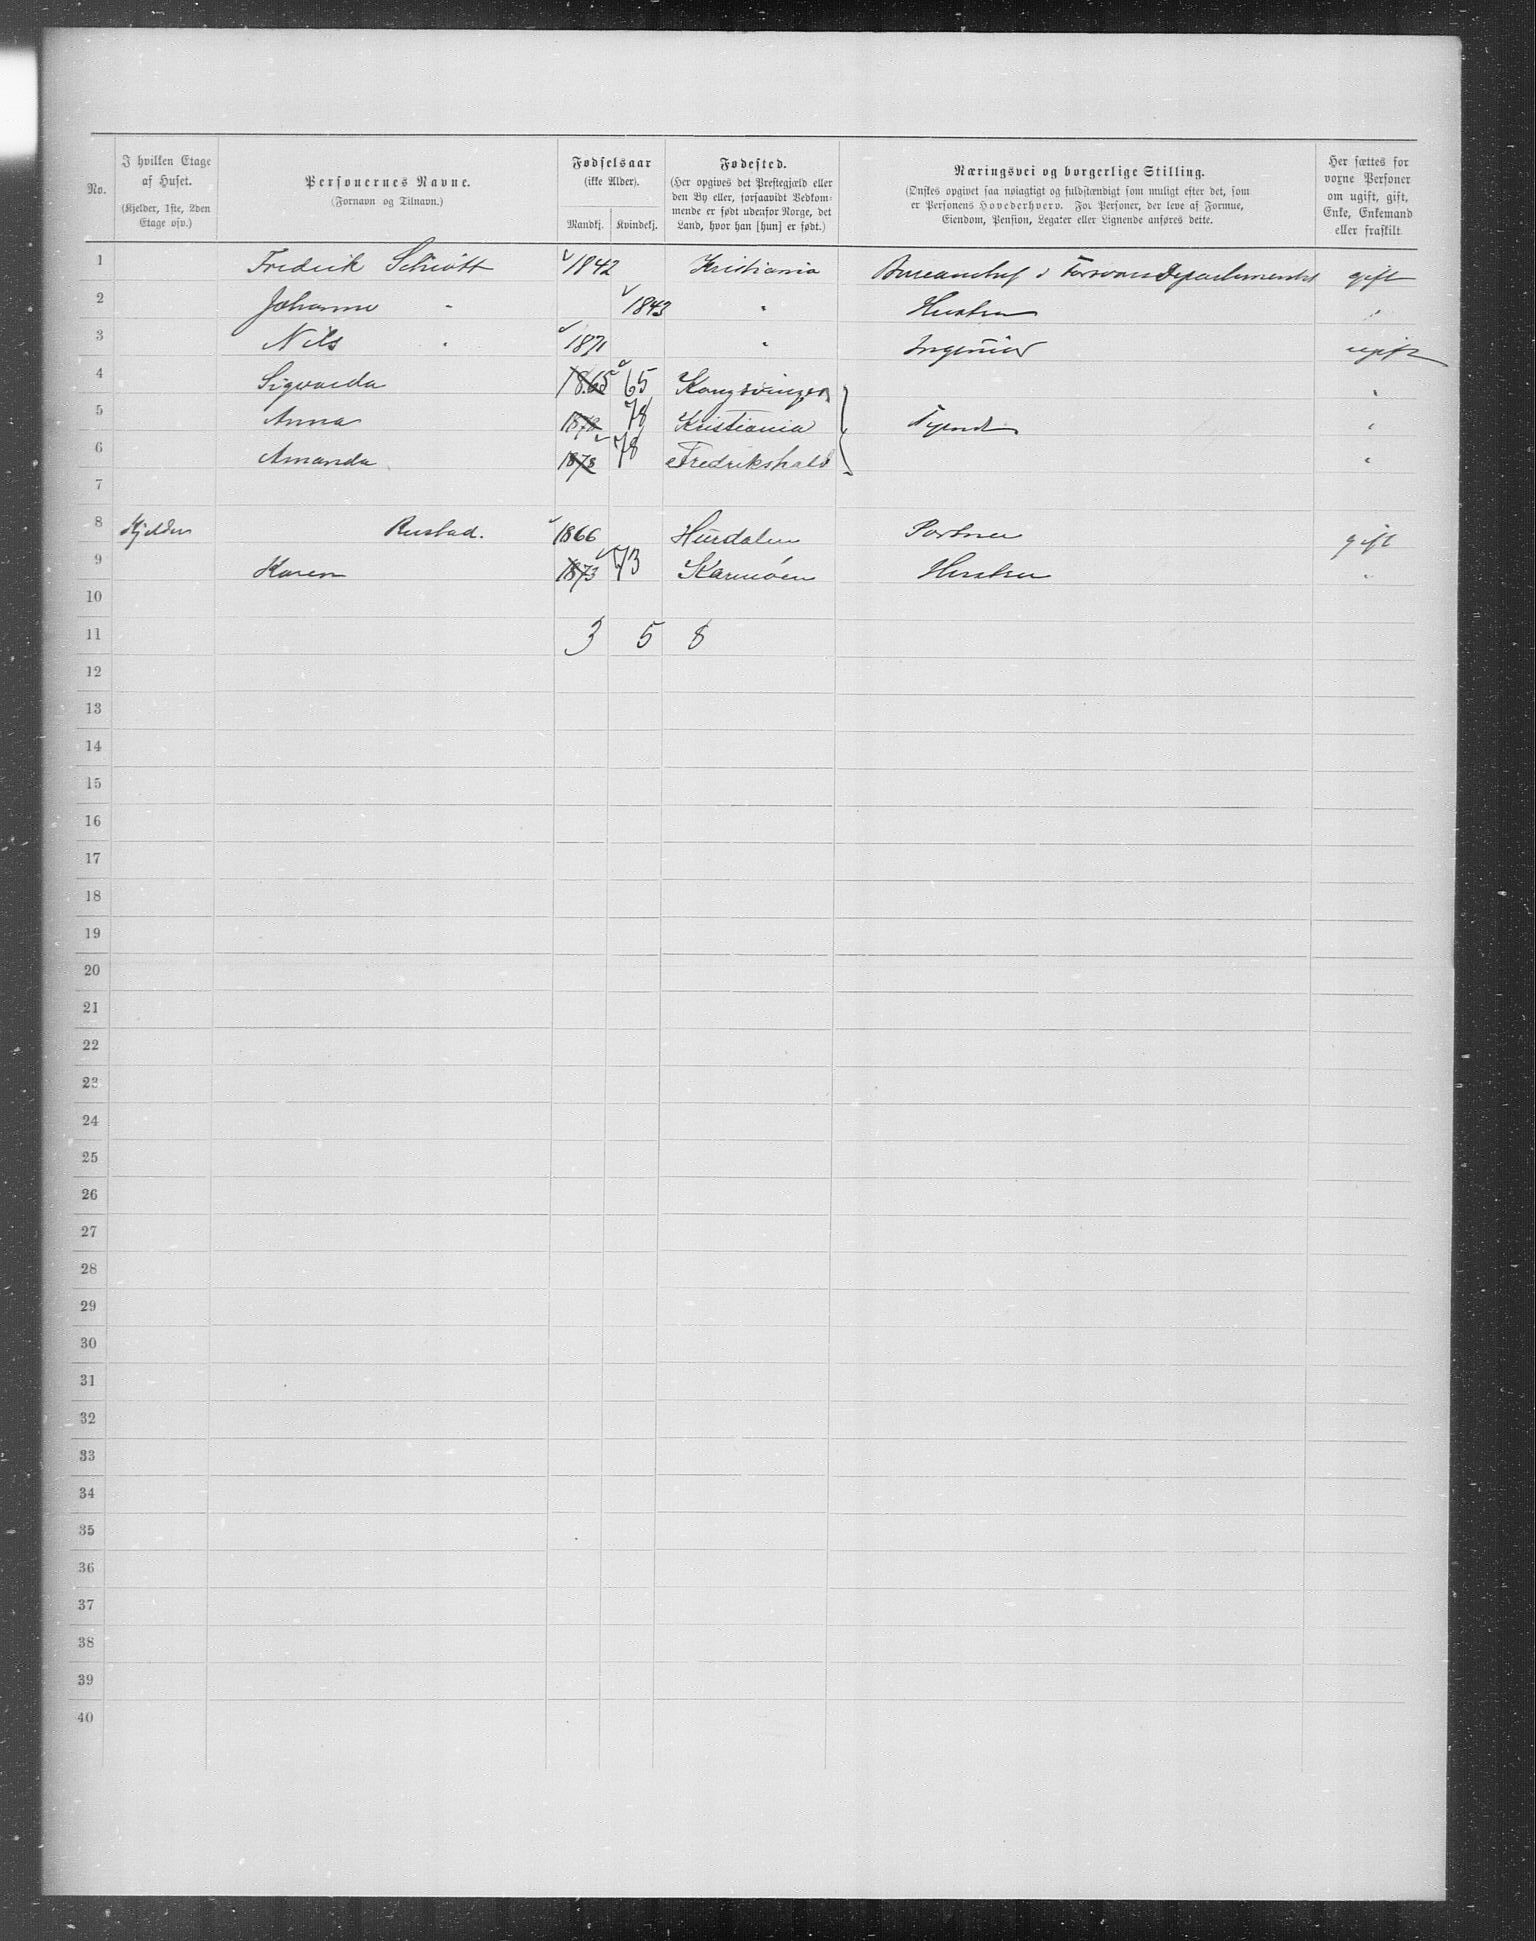 No.
I hvilken Etage af Huset.
(Kjelder, 1ste, 2den Etage osv.)
Personernes Navne.
(Fornavn og Tilnavn.)
Fødselsaar
(ikke Alder).
Mandkj. Kvindekj.
Fødested.
(Her opgives det Prestegjæld eller
den By eller, forsaavidt Vedkom-
mende er født udenfor Norge, det
Land, hvor han [hun] er født.)
Næringsvei og borgerlige Stilling.
(Ønskes opgivet saa nøiagtigt og fuldstændigt som muligt efter det, som
er Personens Hovederhverv. For Personer, der leve af Formue,
Eiendom, Pension, Legater eller Lignende anføres dette.
Her sættes for
voxne Personer
om ugift, gift,
Enke, Enkemand
eller fraskilt
1 Fredrik Schiøtt 1842 Kristiania Bureauchef i Forsvars Departementet gift
2 Johanne " 1843 " Hustru "
3 Nils " 1871 " Ingeniør ugift
4 Sigvarda 1865 65 Kongsvinger "
5 Anna 1878 78 Kristiania Tyende "
6 Amanda 1878 78 Fredrikshald "
7
8 Kjelder Rustad. 1866 Hurdalen Portner gift
9 Karen 1873 73 Karmöen Hustru "
10
11 3 5 8
12
13
14
15
16
17
18
19
20
21
22
23
24
25
26
27
28
29
30
31
32
33
34
35
36
37
38
39
40